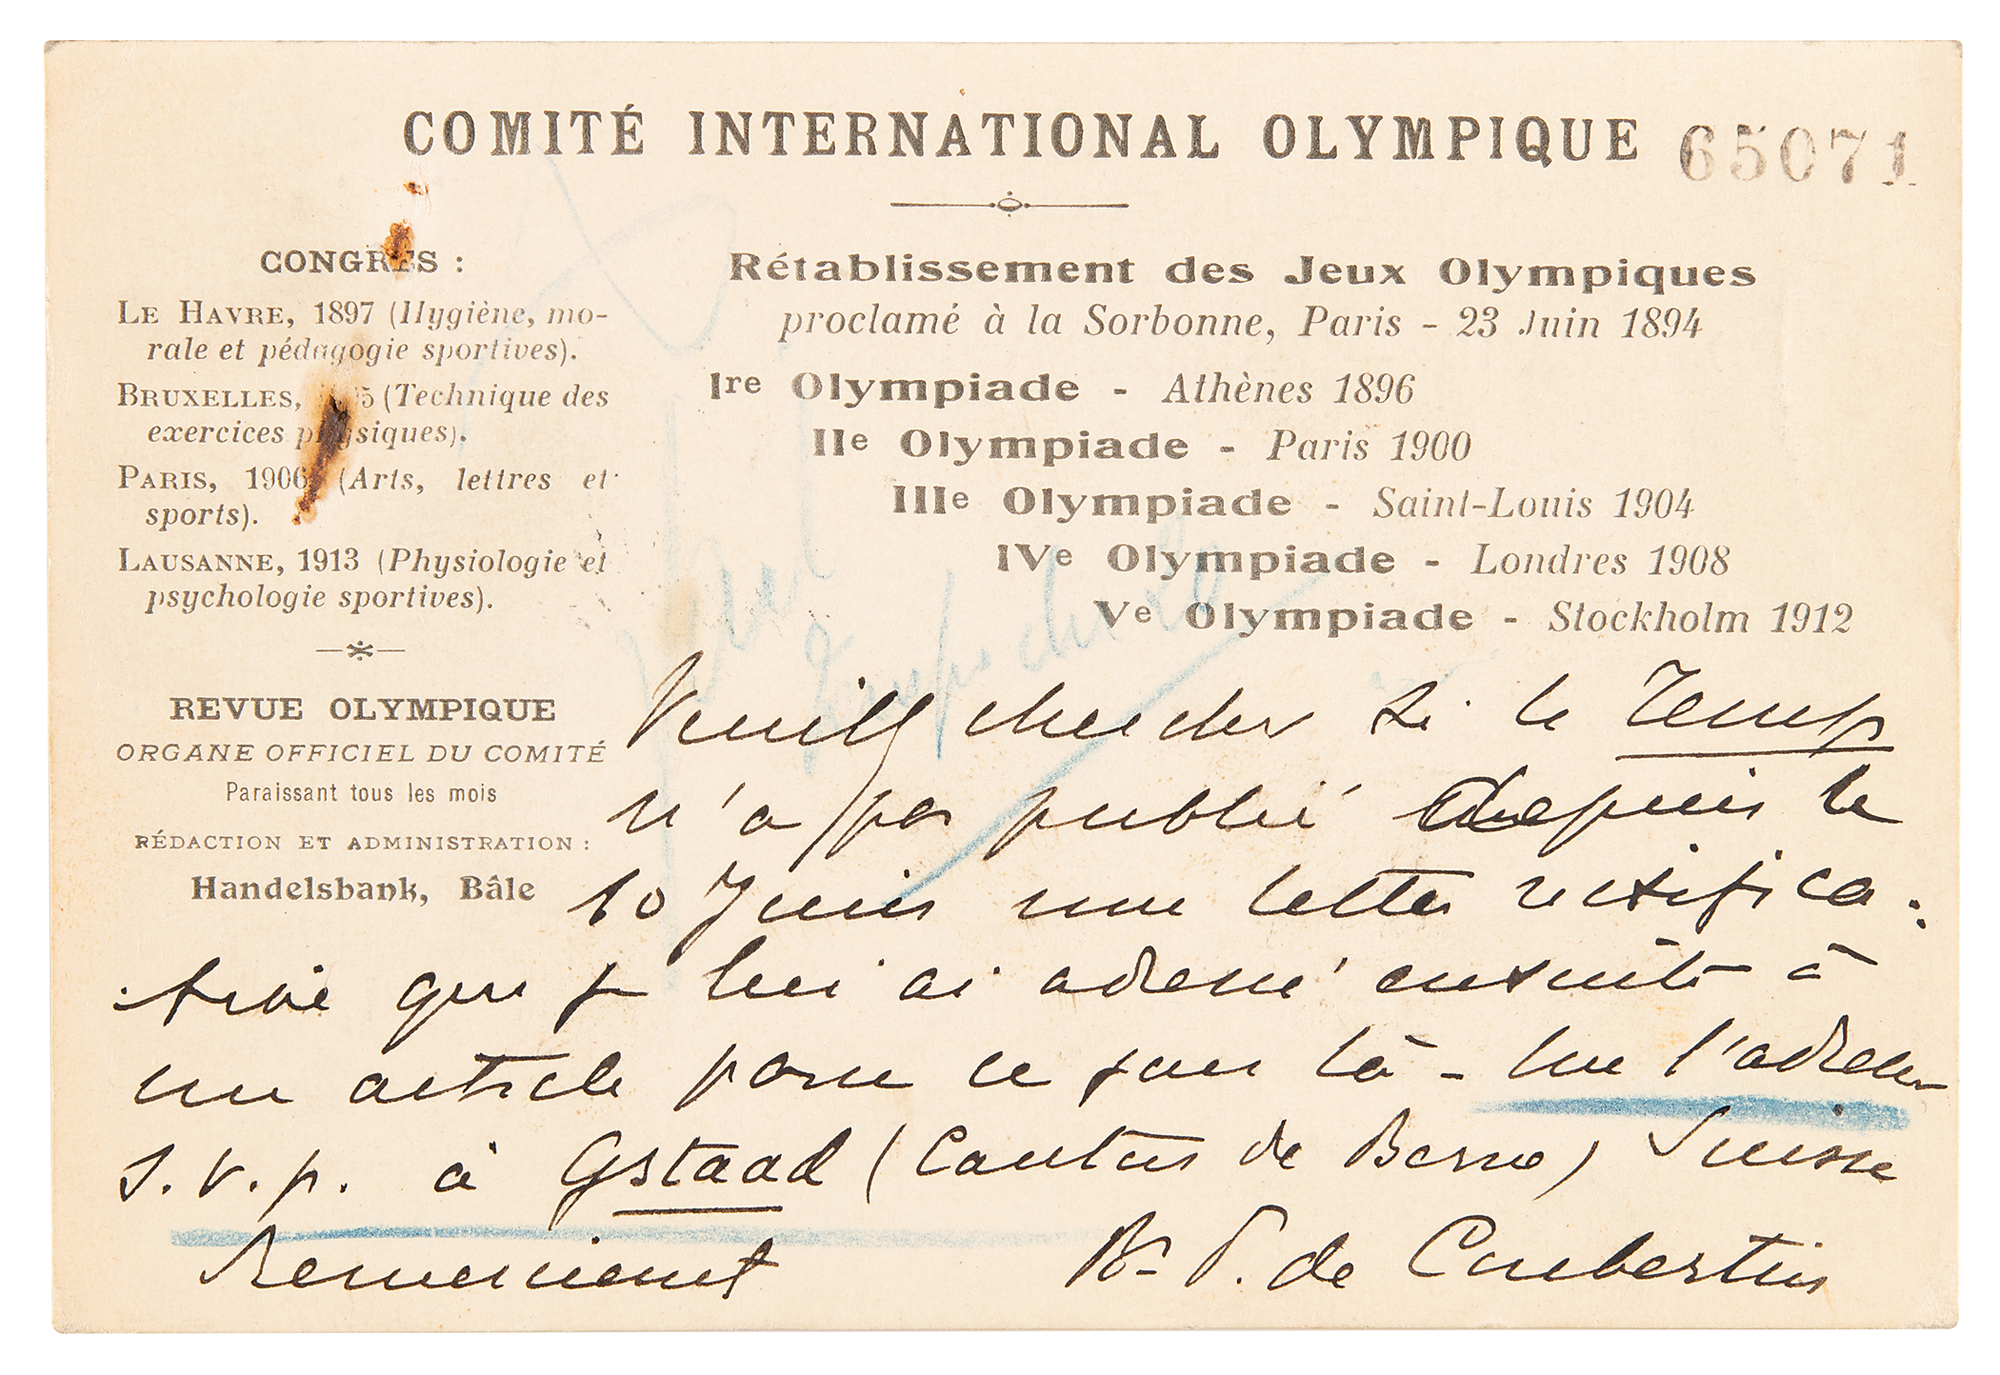 COMITÉ INTERNATIONAL OLYMPIQUE 65071
CONGRÈS :
LE HAVRE, 1897 (Hygiène, mo-
rale et pédagogie sportives).
BRUXELLES, 5 (Technique des
exercices physiques).
PARIS, 1906 (Arts, lettres et
sports).
LAUSANNE, 1913 (Physiologie et
psychologie sportives).
REVUE OLYMPIQUE
ORGANE OFFICIEL DU COMITÉ
Paraissant tous les mois
RÉDACTION ET ADMINISTRATION :
Handelsbank, Bâle
Rétablissement des Jeux Olympiques
proclamé à la Sorbonne, Paris - 23 Juin 1894
Ire Olympiade - Athènes 1896
IIe Olympiade - Paris 1900
IIIe Olympiade - Saint-Louis 1904
IVe Olympiade - Londres 1908
Ve Olympiade - Stockholm 1912
Veuillez chercher si le Temps
n'a pas publié depuis le
10 Juin une lettre rectifica-
-tive que je lui ai adressé ensuite à
un article paru ce jour là - Me l'adresser
S.V.p. à Gstaad (Canton de Berne) Suisse
Remerciements Bn P. de Coubertin